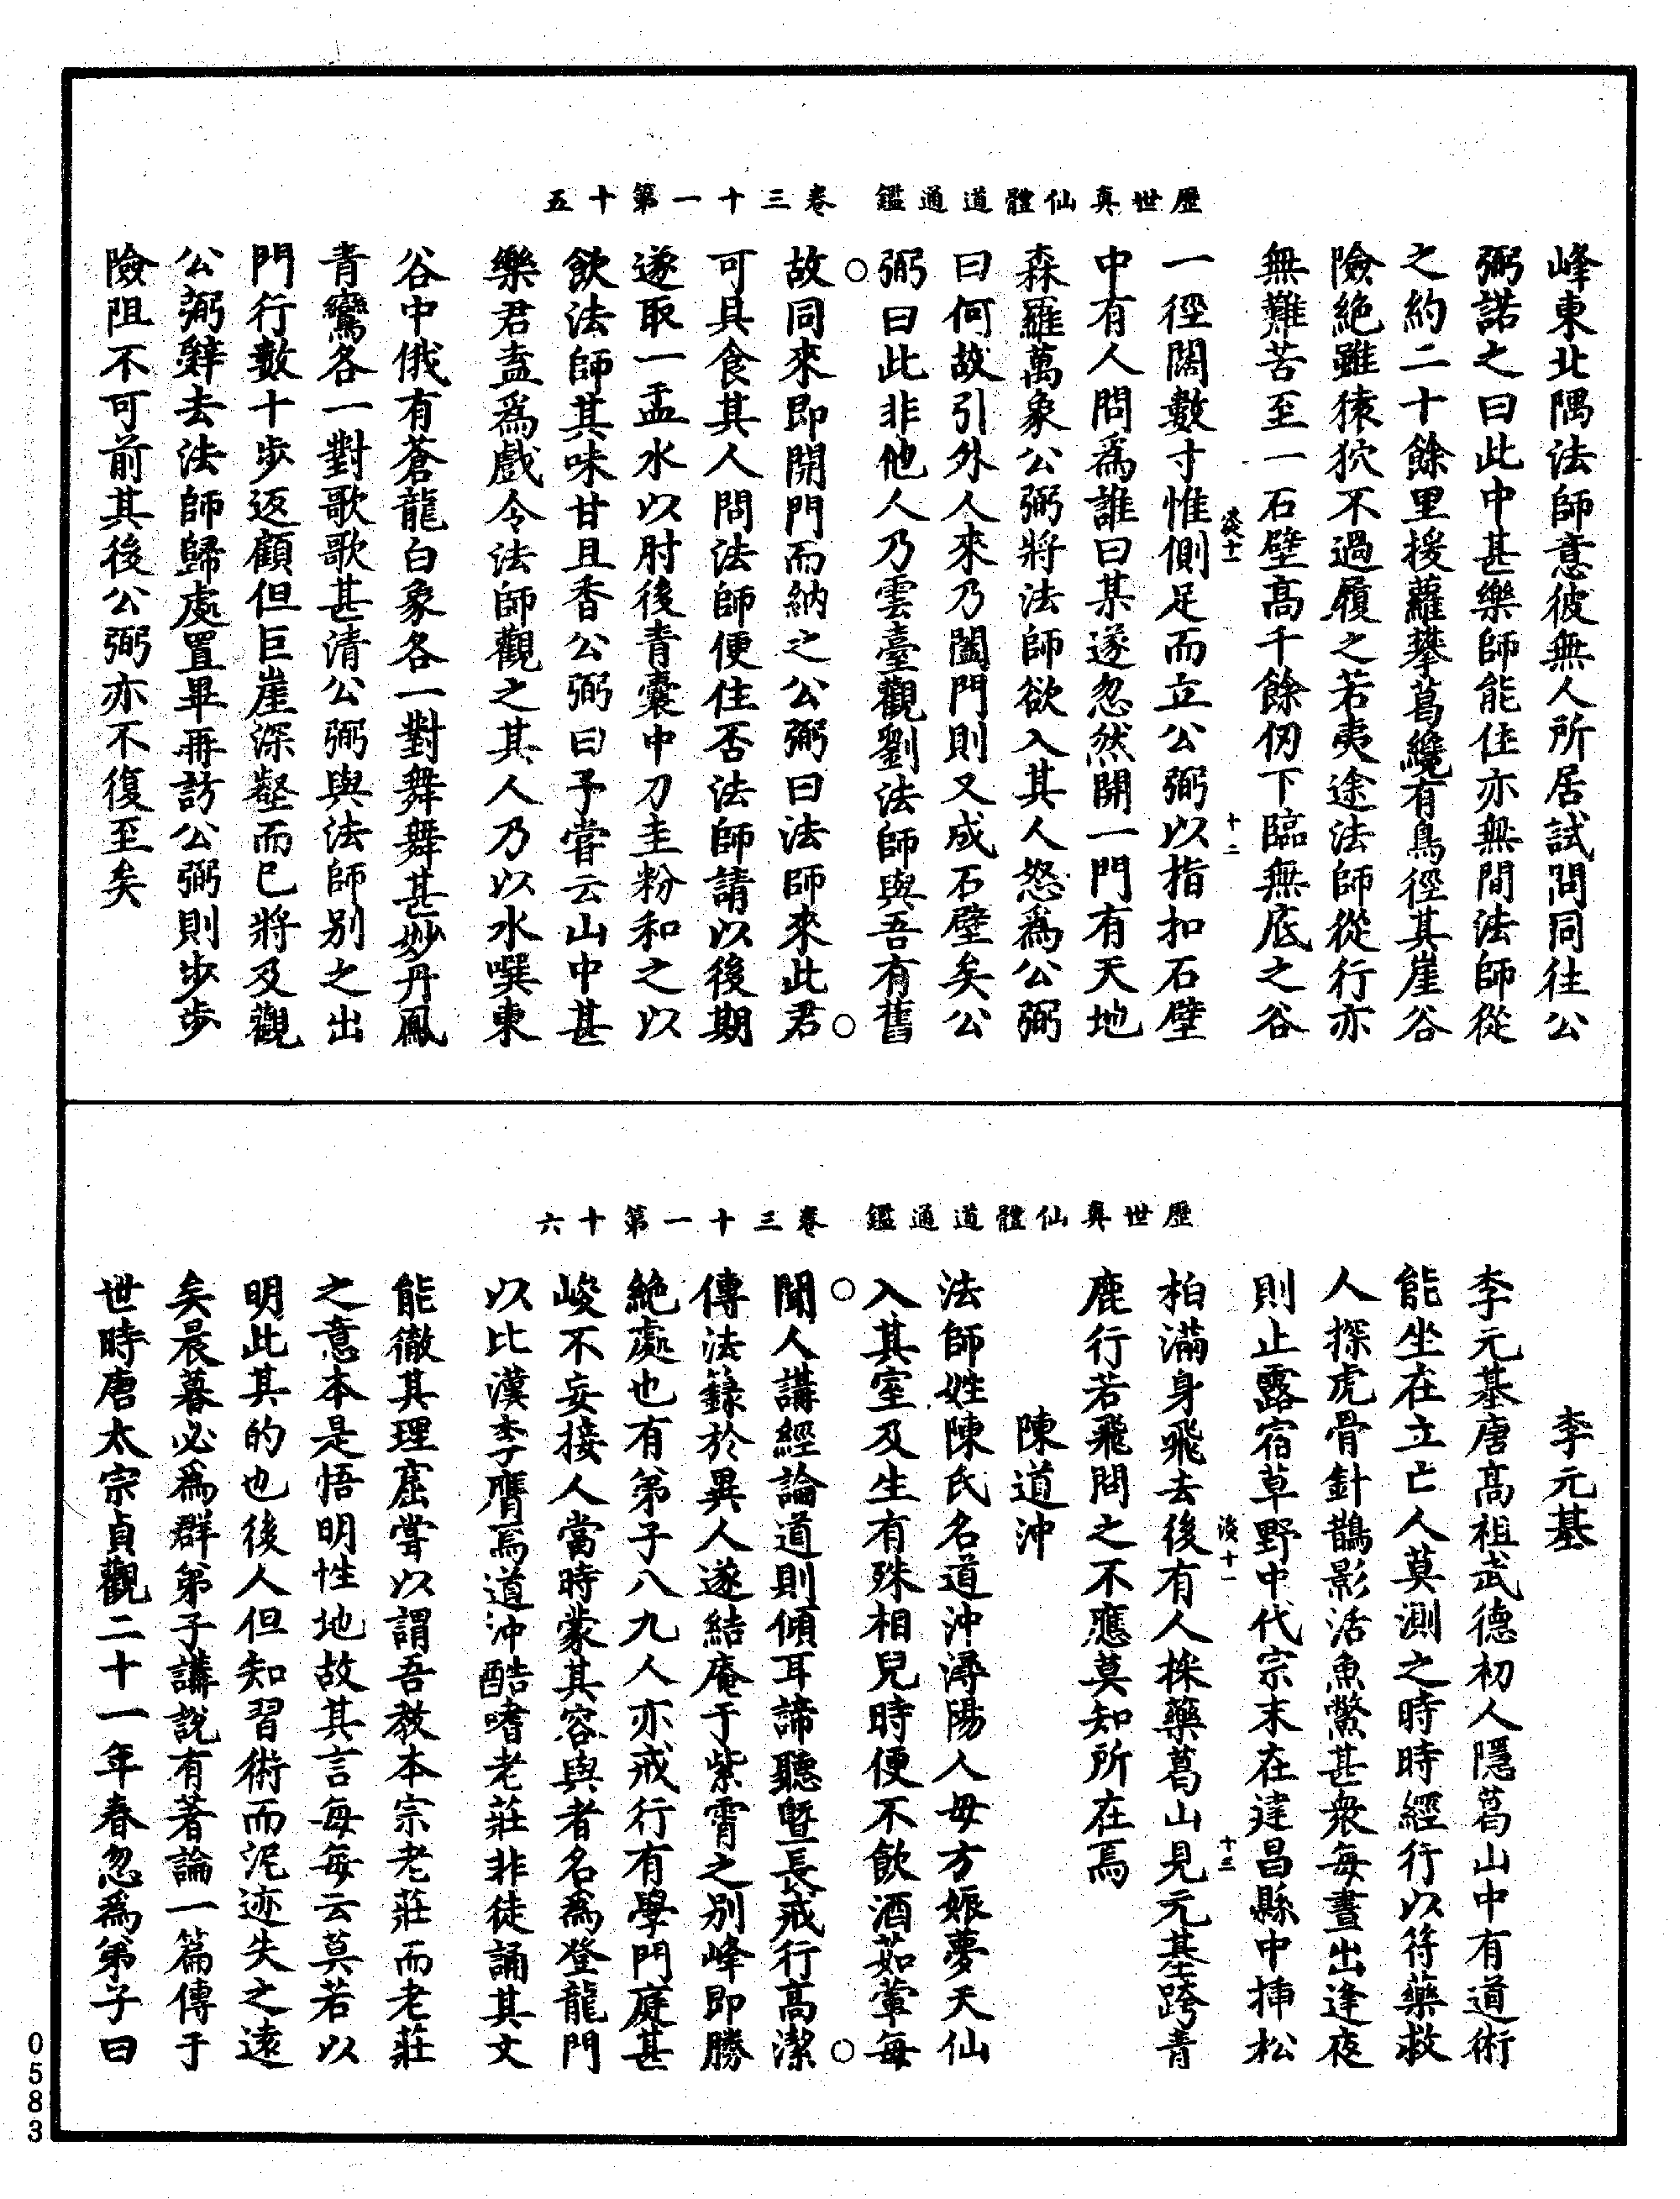 歷世真仙體道通鑑　卷三十一第十五
峰東北隅法師意彼無人所居試問同往公
弼諾之曰此中甚樂師能住亦無間法師從
之約二十餘里援蘿攀葛纔有鳥徑其崖谷
險絕雖猿狖不過履之若夷途法師從行亦
無難苦至一石壁高千餘仞下臨無底之谷
淡十一　十二
一徑闊數寸惟側足而立公弼以指扣石壁
中有人問為誰曰某遂忽然開一門有天地
森羅萬象公弼將法師欲入其人怒為公弼
曰何故引外人來乃闔門則又成石壁矣公
弼曰此非他人乃雲臺觀劉法師與吾有舊
○○
故同來即開門而納之公弼曰法師來此君
可具食其人問法師便住否法師請以後期
遂取一盂水以肘後青囊中刀圭粉和之以
飲法師其味甘且香公弼曰予嘗云山中甚
樂君盍為戲令法師觀之其人乃以水噀東
谷中俄有蒼龍白象各一對舞舞甚妙丹鳳
青鸞各一對歌歌甚清公弼與法師別之出
門行數十步返顧但巨崖深壑而已將及觀
公弼辭去法師歸處置畢再訪公弼則步步
險阻不可前其後公弼亦不復至矣
歷世真仙體道通鑑　卷三十一第十六
李元基
李元基唐高祖武德初人隱葛山中有道術
能坐在立亡人莫測之時時經行以符藥救
人探虎骨針鵲影活魚鱉甚衆每晝出逢夜
則止露宿草野中代宗末在建昌縣中插松
淡十一　十三
柏滿身飛去後有人採藥葛山見元基跨青
鹿行若飛問之不應莫知所在焉
陳道沖
法師姓陳氏名道沖潯陽人母方娠夢天仙
入其室及生有殊相兒時便不飲酒茹葷每
○○
聞人講經論道則傾耳諦聽暨長戒行高潔
傳法籙於異人遂結庵于紫霄之別峰即勝
絕處也有弟子八九人亦戒行有學門庭甚
峻不妄接人當時蒙其容與者名為登龍門
以比漢李膺焉道沖酷嗜老莊非徒誦其文
能徹其理窟嘗以謂吾教本宗老莊而老莊
之意本是悟明性地故其言每每云莫若以
明此其的也後人但知習術而泥迹失之遠
矣晨暮必為群弟子講說有著論一篇傳于
世時唐太宗貞觀二十一年春忽為弟子曰
0583